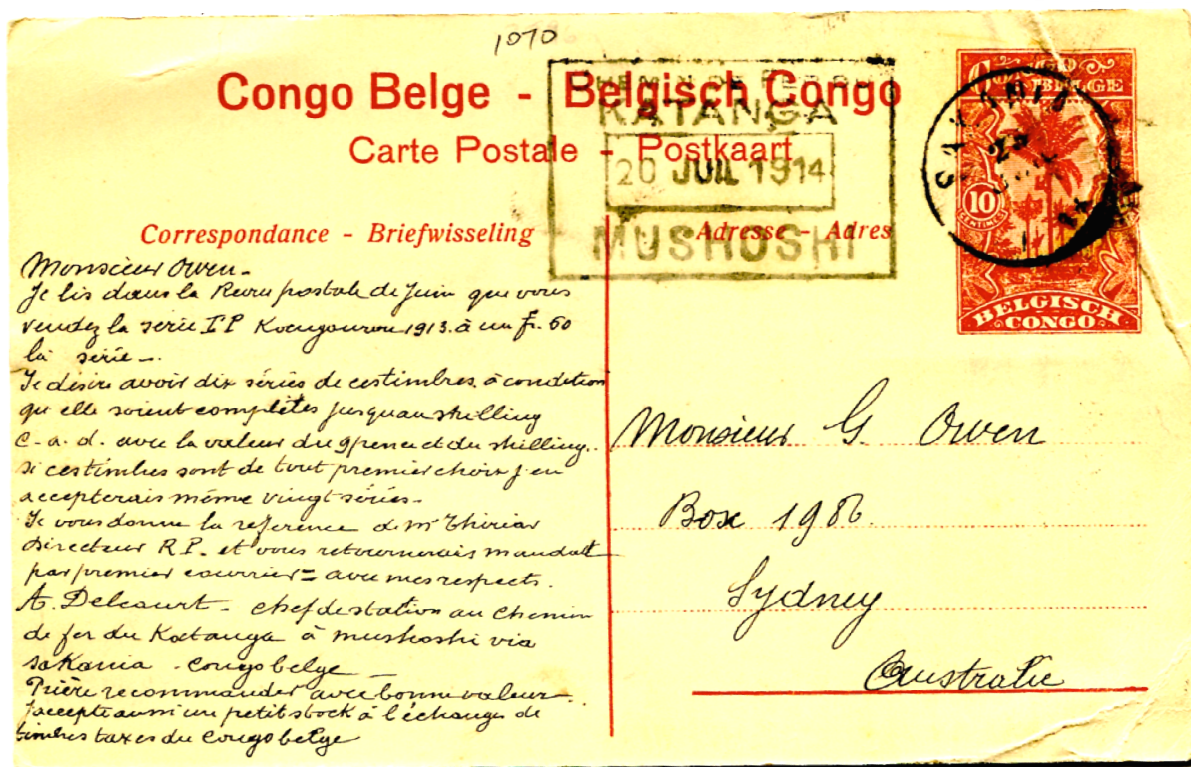 1070
Congo Belge - Belgisch Congo
Carte Postale - Postkaart
CHEMIN DE FER DU
KATANGA
20 JUIL 1914
MUSHOSHI
CONGO BELGE
SAKANIA
10
CENTIMES
BELGISCH
CONGO
Correspondance - Briefwisseling
Adresse - Adres
Monsieur Owen -
Je lis dans la Revue postale de Juin que vous
vendez la série Kangourou 1913 à un fr. 60
la série -
Je désire avoir dix séries de ces timbres, à condition
qu elle soient complètes jusquau shilling
c.-a.d. avec la valeur du 9 pence et du shilling.
si ces timbres sont de tout premier choix j'en
accepterais même vingt séries -
Je vous donne la reference de Mr Thiriar
directeur R.P. et vous retournerais mandat
par premier courrier = avec mes respects.
A. Delcourt - chef de station au Chemin
de fer du Katanga à Mushoshi via
Sakania - Congo belge -
Prière recommander avec bonne valeur
J'accepte aussi un petit stock à l'échange de
timbres taxes du Congo belge
Monsieur G. Owen
Box 1986
Sydney
Australie